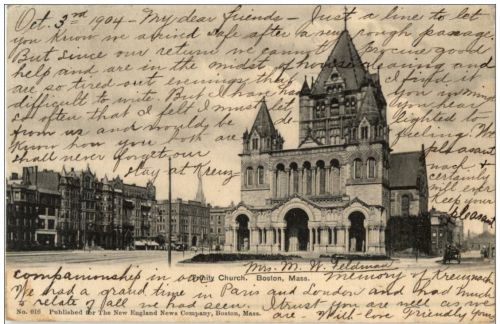 Oct 3rd 1904 - My dear friends - Just a line to let
you know we arrived safe after a very rough passage.
But since our return we cannot procure good
help and are in the midst of housecleaning and
are so tired out evenings that I find it
difficult to write. But I have had you in mind
so often that I felt I must let you hear
from us and would be delighted to
know how you both are feeling. We
shall never forget our pleasant
stay at Kreuznach &
certainly
will ever
keep your
pleasant
companionship in our memory of Kreuznach
We had a grand time in Paris and London and had much
to relate of all we had seen. I trust you are well as we
are - Must love friendly greeting
Mrs. M. W. Feldman
Trinity Church. Boston, Mass.
No. 616 Published for The New England News Company, Boston, Mass.